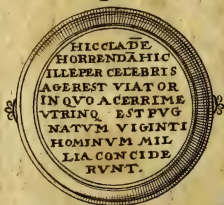 HIC CLADE̅
HORRENDA̅ HIC
ILLE PER CELEBRIS
AGER EST VIATOR
IN QVO ACERRIME
VTRINQ EST PVG
NATVM VIGINTI
HOMINVM MIL
LIA CONCIDE
RVNT.